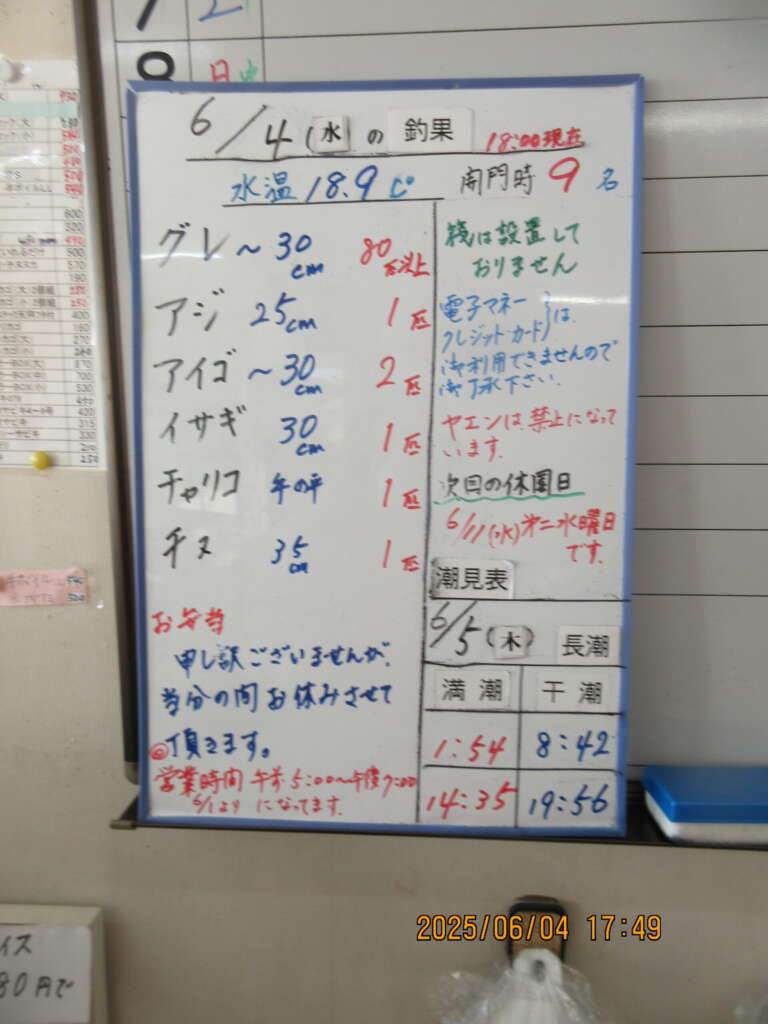 6/4(水)の釣果 18:00現在
水温 18.9℃ 開門時 9名
グレ ~30cm 80匹以上
アジ 25cm 1匹
アイゴ ~30cm 2匹
イサギ 30cm 1匹
チャリコ 手の平 1匹
チヌ 35cm 1匹
お弁当
申し訳ございませんが、
当分の間お休みさせて
頂きます。
営業時間 午前5:00~午後7:00
6/1より になってます。
桟は設置して
おりません
電子マネー
クレジットカード は
御利用できませんので
御了承下さい。
ヤエンは禁止になって
います。
次回の休園日
6/11(水)第二水曜日
です。
潮見表
6/5(木) 長潮
満潮 干潮
1:54 8:42
14:35 19:56
2025/06/04 17:49